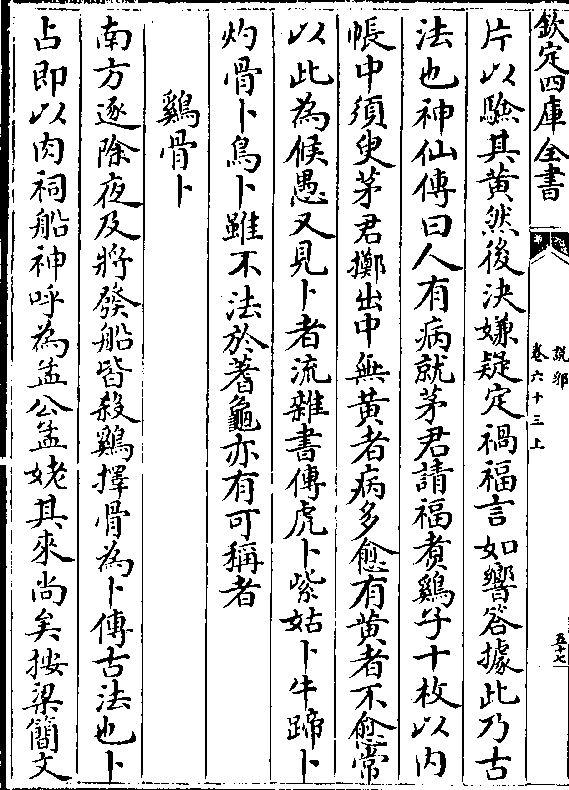 欽定四庫全書
說郛
卷六十三上
五十七
片以驗其黃然後決嫌疑定禍福言如響答據此乃古
法也神仙傳曰人有病就茅君請福煮鷄子十枚以内
帳中須臾茅君擲出中無黃者病多愈有黄者不愈常
以此為候愚又見卜者流雜書傳虎卜紫姑卜牛蹄卜
灼骨卜鳥卜雖不法於蓍龜亦有可稱者
鷄骨卜
南方逐除夜及將發船皆殺鷄擇骨為卜傳古法也卜
占即以肉祠船神呼為孟公孟姥其來尚矣按梁簡文